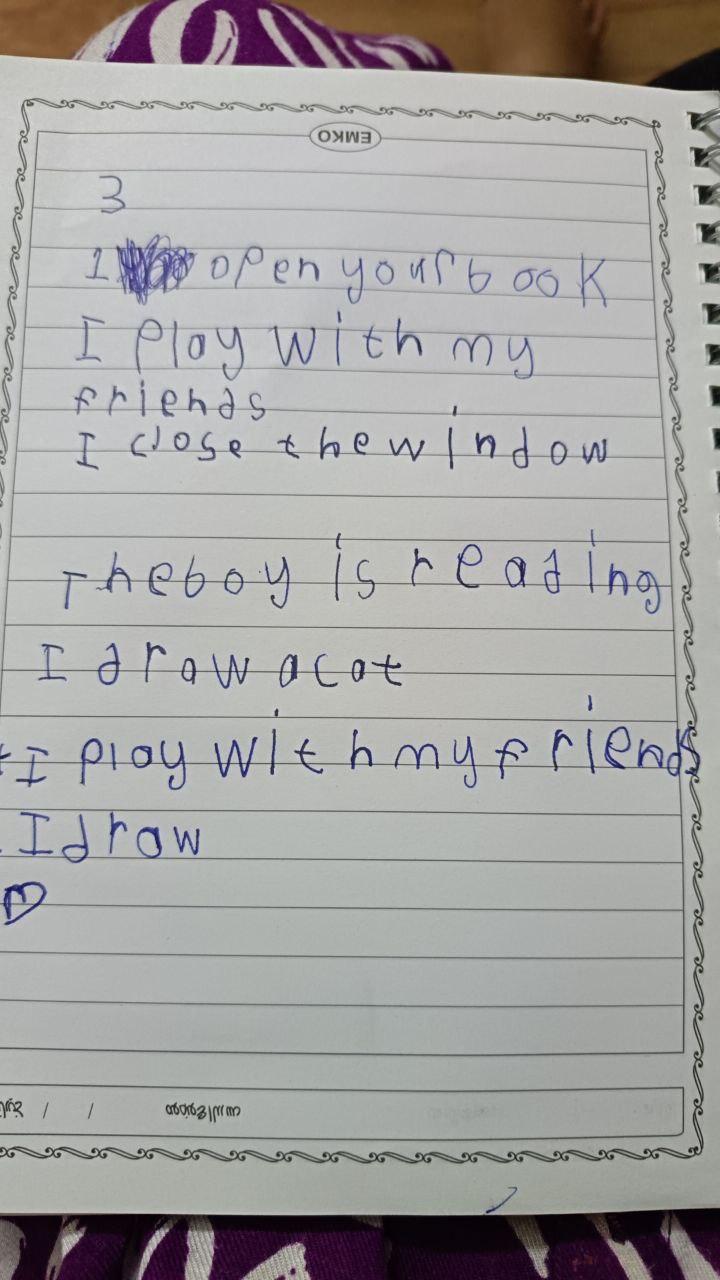 EMKO
3
1 open your book
I play with my
friends
I close the window
The boy is reading
I draw a cat
I play with my friends
I draw